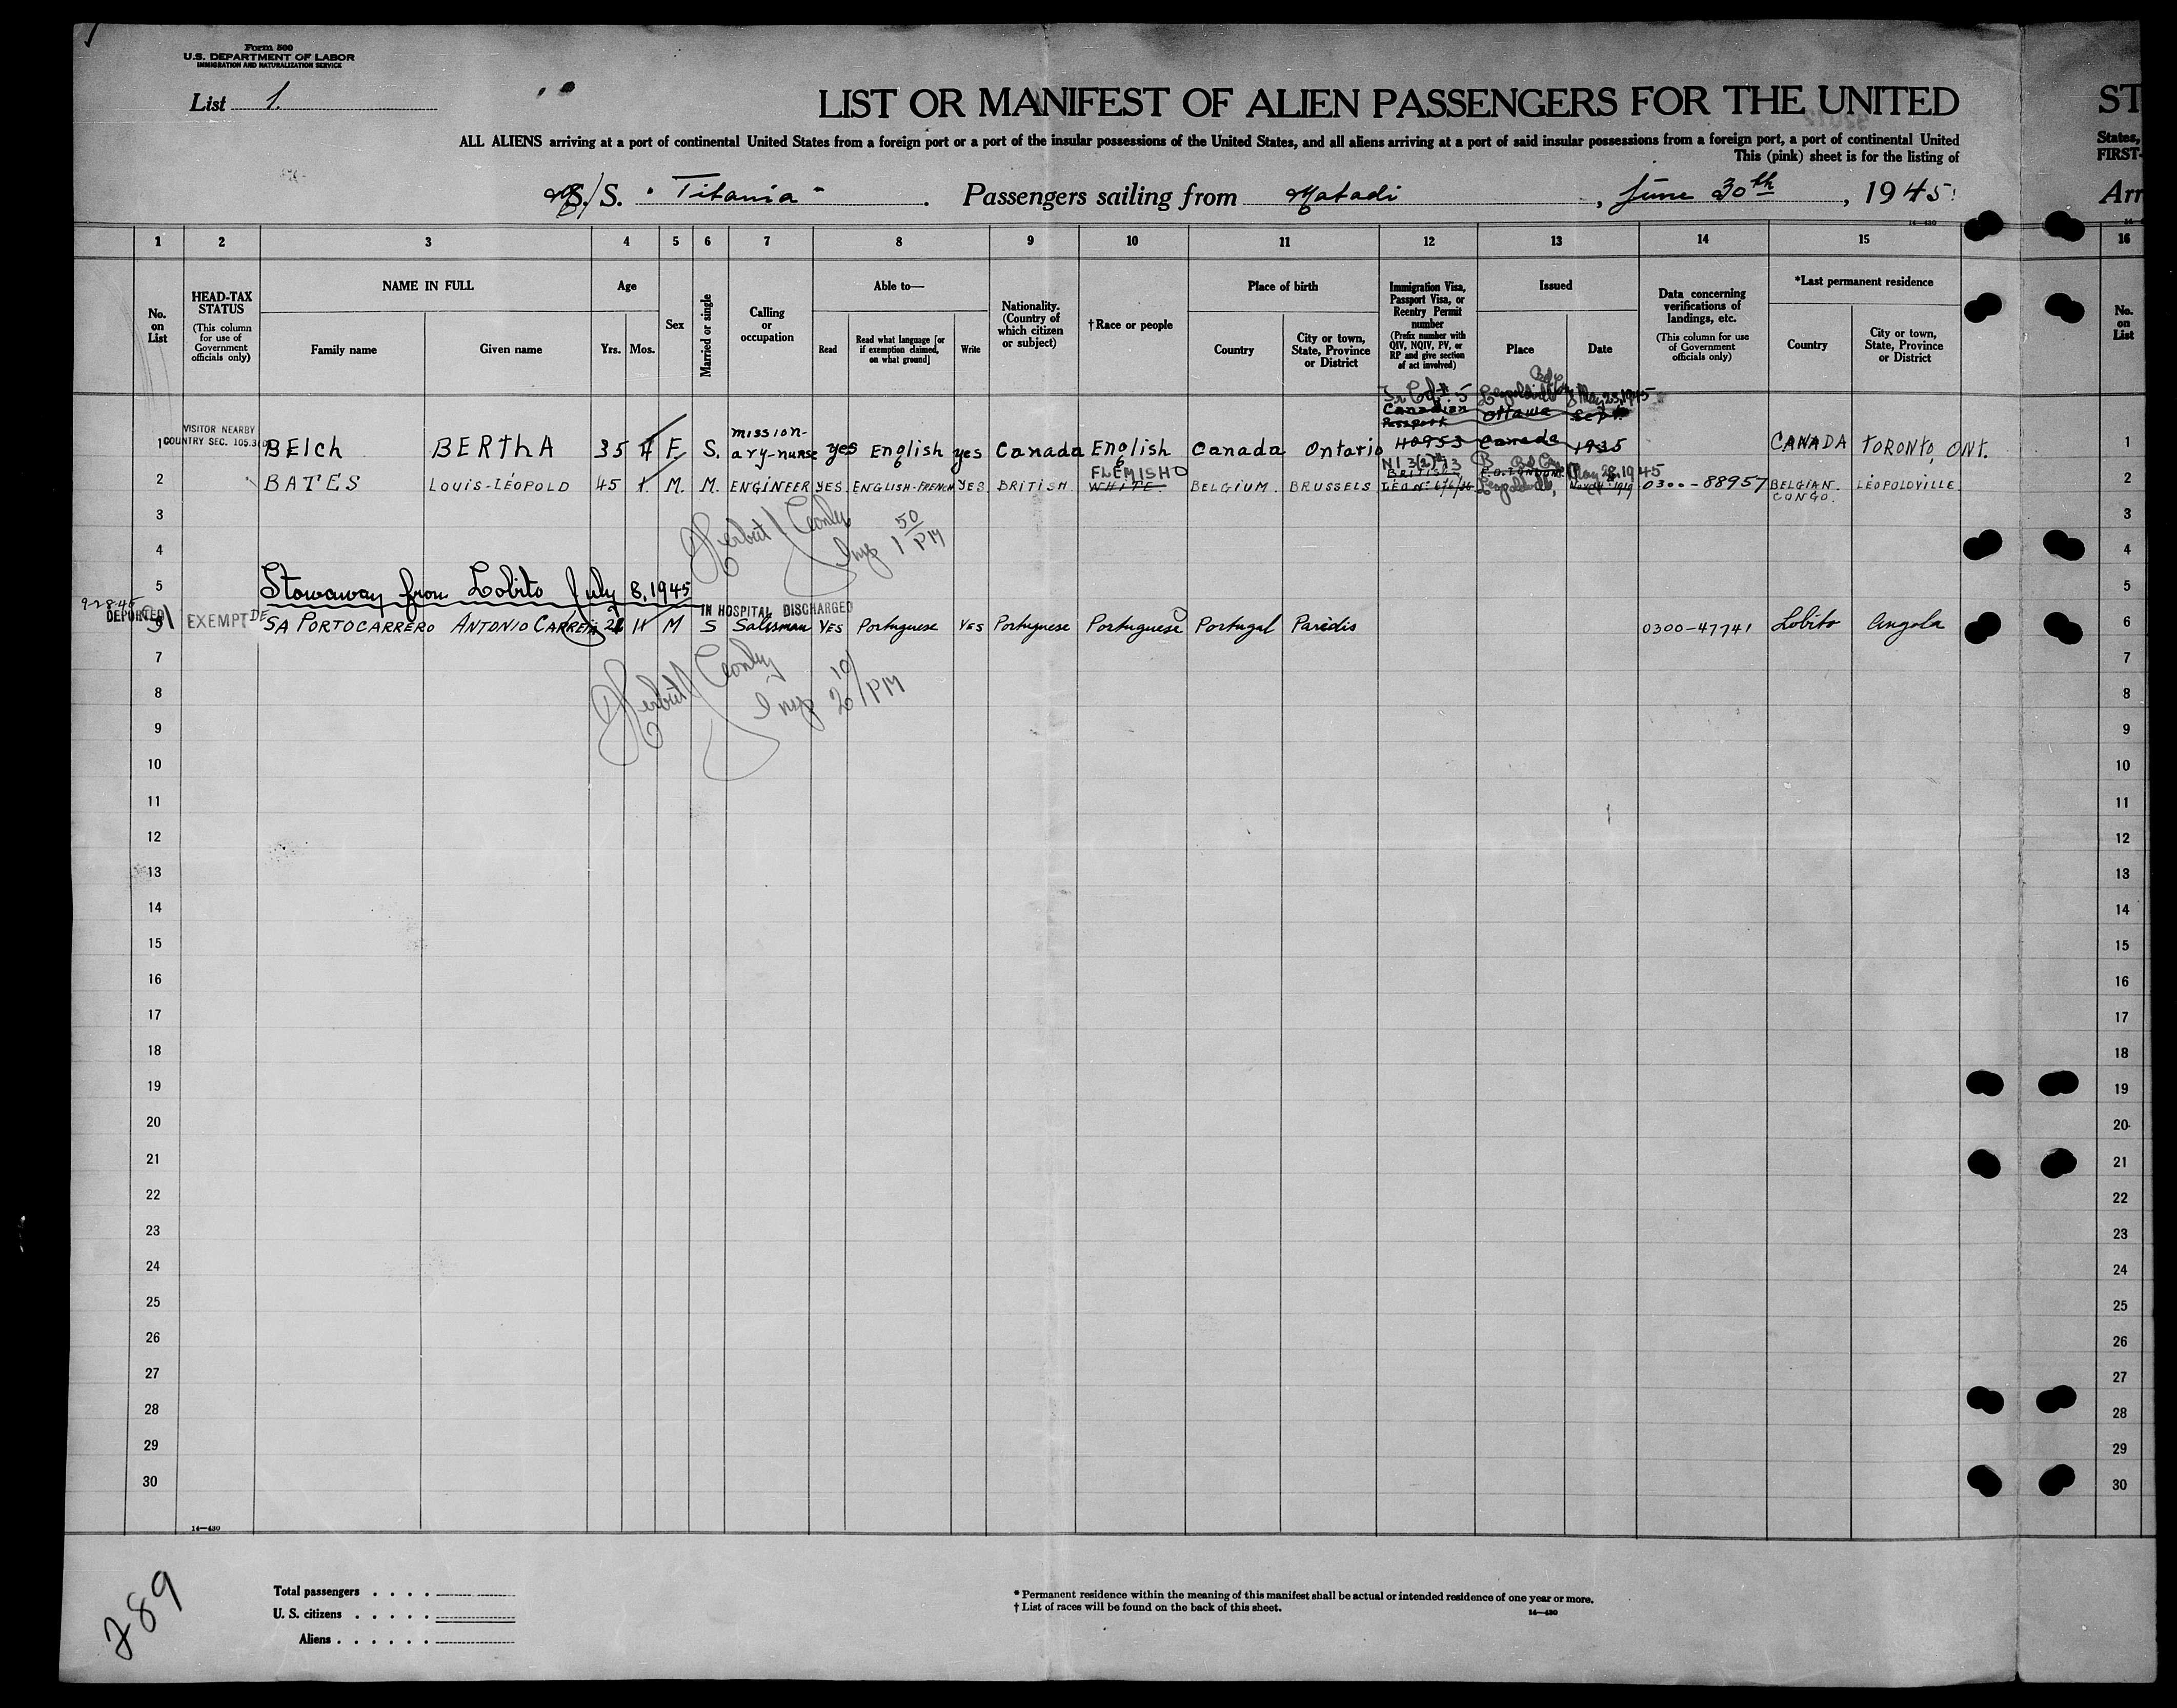 Form 500
U.S. DEPARTMENT OF LABOR
IMMIGRATION AND NATURALIZATION SERVICE
List 1.
LIST OR MANIFEST OF ALIEN PASSENGERS FOR THE UNITED
ST
ALL ALIENS arriving at a port of continental United States from a foreign port or a port of the insular possessions of the United States, and all aliens arriving at a port of said insular possessions from a foreign port, a port of continental United
States,
This (pink) sheet is for the listing of
FIRST-
S. S. "Titania". Passengers sailing from Matadi, June 30th, 1945.
Arr
14—430
1 2 3 4 5 6 7 8 9 10 11 12 13 14 15 16
No. on List
HEAD-TAX STATUS
(This column for use of Government officials only)
NAME IN FULL
Family name
Given name
Age
Yrs. Mos.
Sex
Married or single
Calling or occupation
Able to—
Read
Read what language [or if exemption claimed, on what ground]
Write
Nationality. (Country of which citizen or subject)
†Race or people
Place of birth
Country
City or town, State, Province or District
Immigration Visa, Passport Visa, or Reentry Permit number
(Prefix number with QIV, NQIV, PV, or RP and give section of act involved)
Issued
Place
Date
Data concerning verifications of landings, etc.
(This column for use of Government officials only)
*Last permanent residence
Country
City or town, State, Province or District
No. on List
May 23, 1945
Canadian Ottawa Sept.
Passport
VISITOR NEARBY
COUNTRY SEC. 105.3
1 BElch BERThA 35 F. S. mission-ary-nurse yes English yes Canada English Canada Ontario 40953 Canada 1935 CANADA TORONTO, ONT. 1
FLEMISH
BRITISH
May 28, 1945
2 BATES LOUIS-LÉOPOLD 45 M. M. ENGINEER YES. ENGLISH-FRENCH YES BRITISH WHITE. BELGIUM. BRUSSELS 0300-88957 BELGIAN CONGO. LÉOPOLDVILLE 2
3 3
Herbert
50
Insp 1 PM
4 4
5 Stowaway from Lobito July 8, 1945 5
9-28-45
DEPORTED
IN HOSPITAL DISCHARGED
EXEMPT DE SA PORTOCARRERO ANTONIO CARREIA M S Salesman YES Portuguese YES Portuguese Portuguese Portugal Paredis 0300-47741 Lobito Angola 6
7 7
Herbert
10
Insp 2 PM
8 8
9 9
10 10
11 11
12 12
13 13
14 14
15 15
16 16
17 17
18 18
19 19
20 20
21 21
22 22
23 23
24 24
25 25
26 26
27 27
28 28
29 29
30 30
14—430
289
Total passengers . . . .
U. S. citizens . . . . .
Aliens . . . . . .
* Permanent residence within the meaning of this manifest shall be actual or intended residence of one year or more.
† List of races will be found on the back of this sheet.
14—430